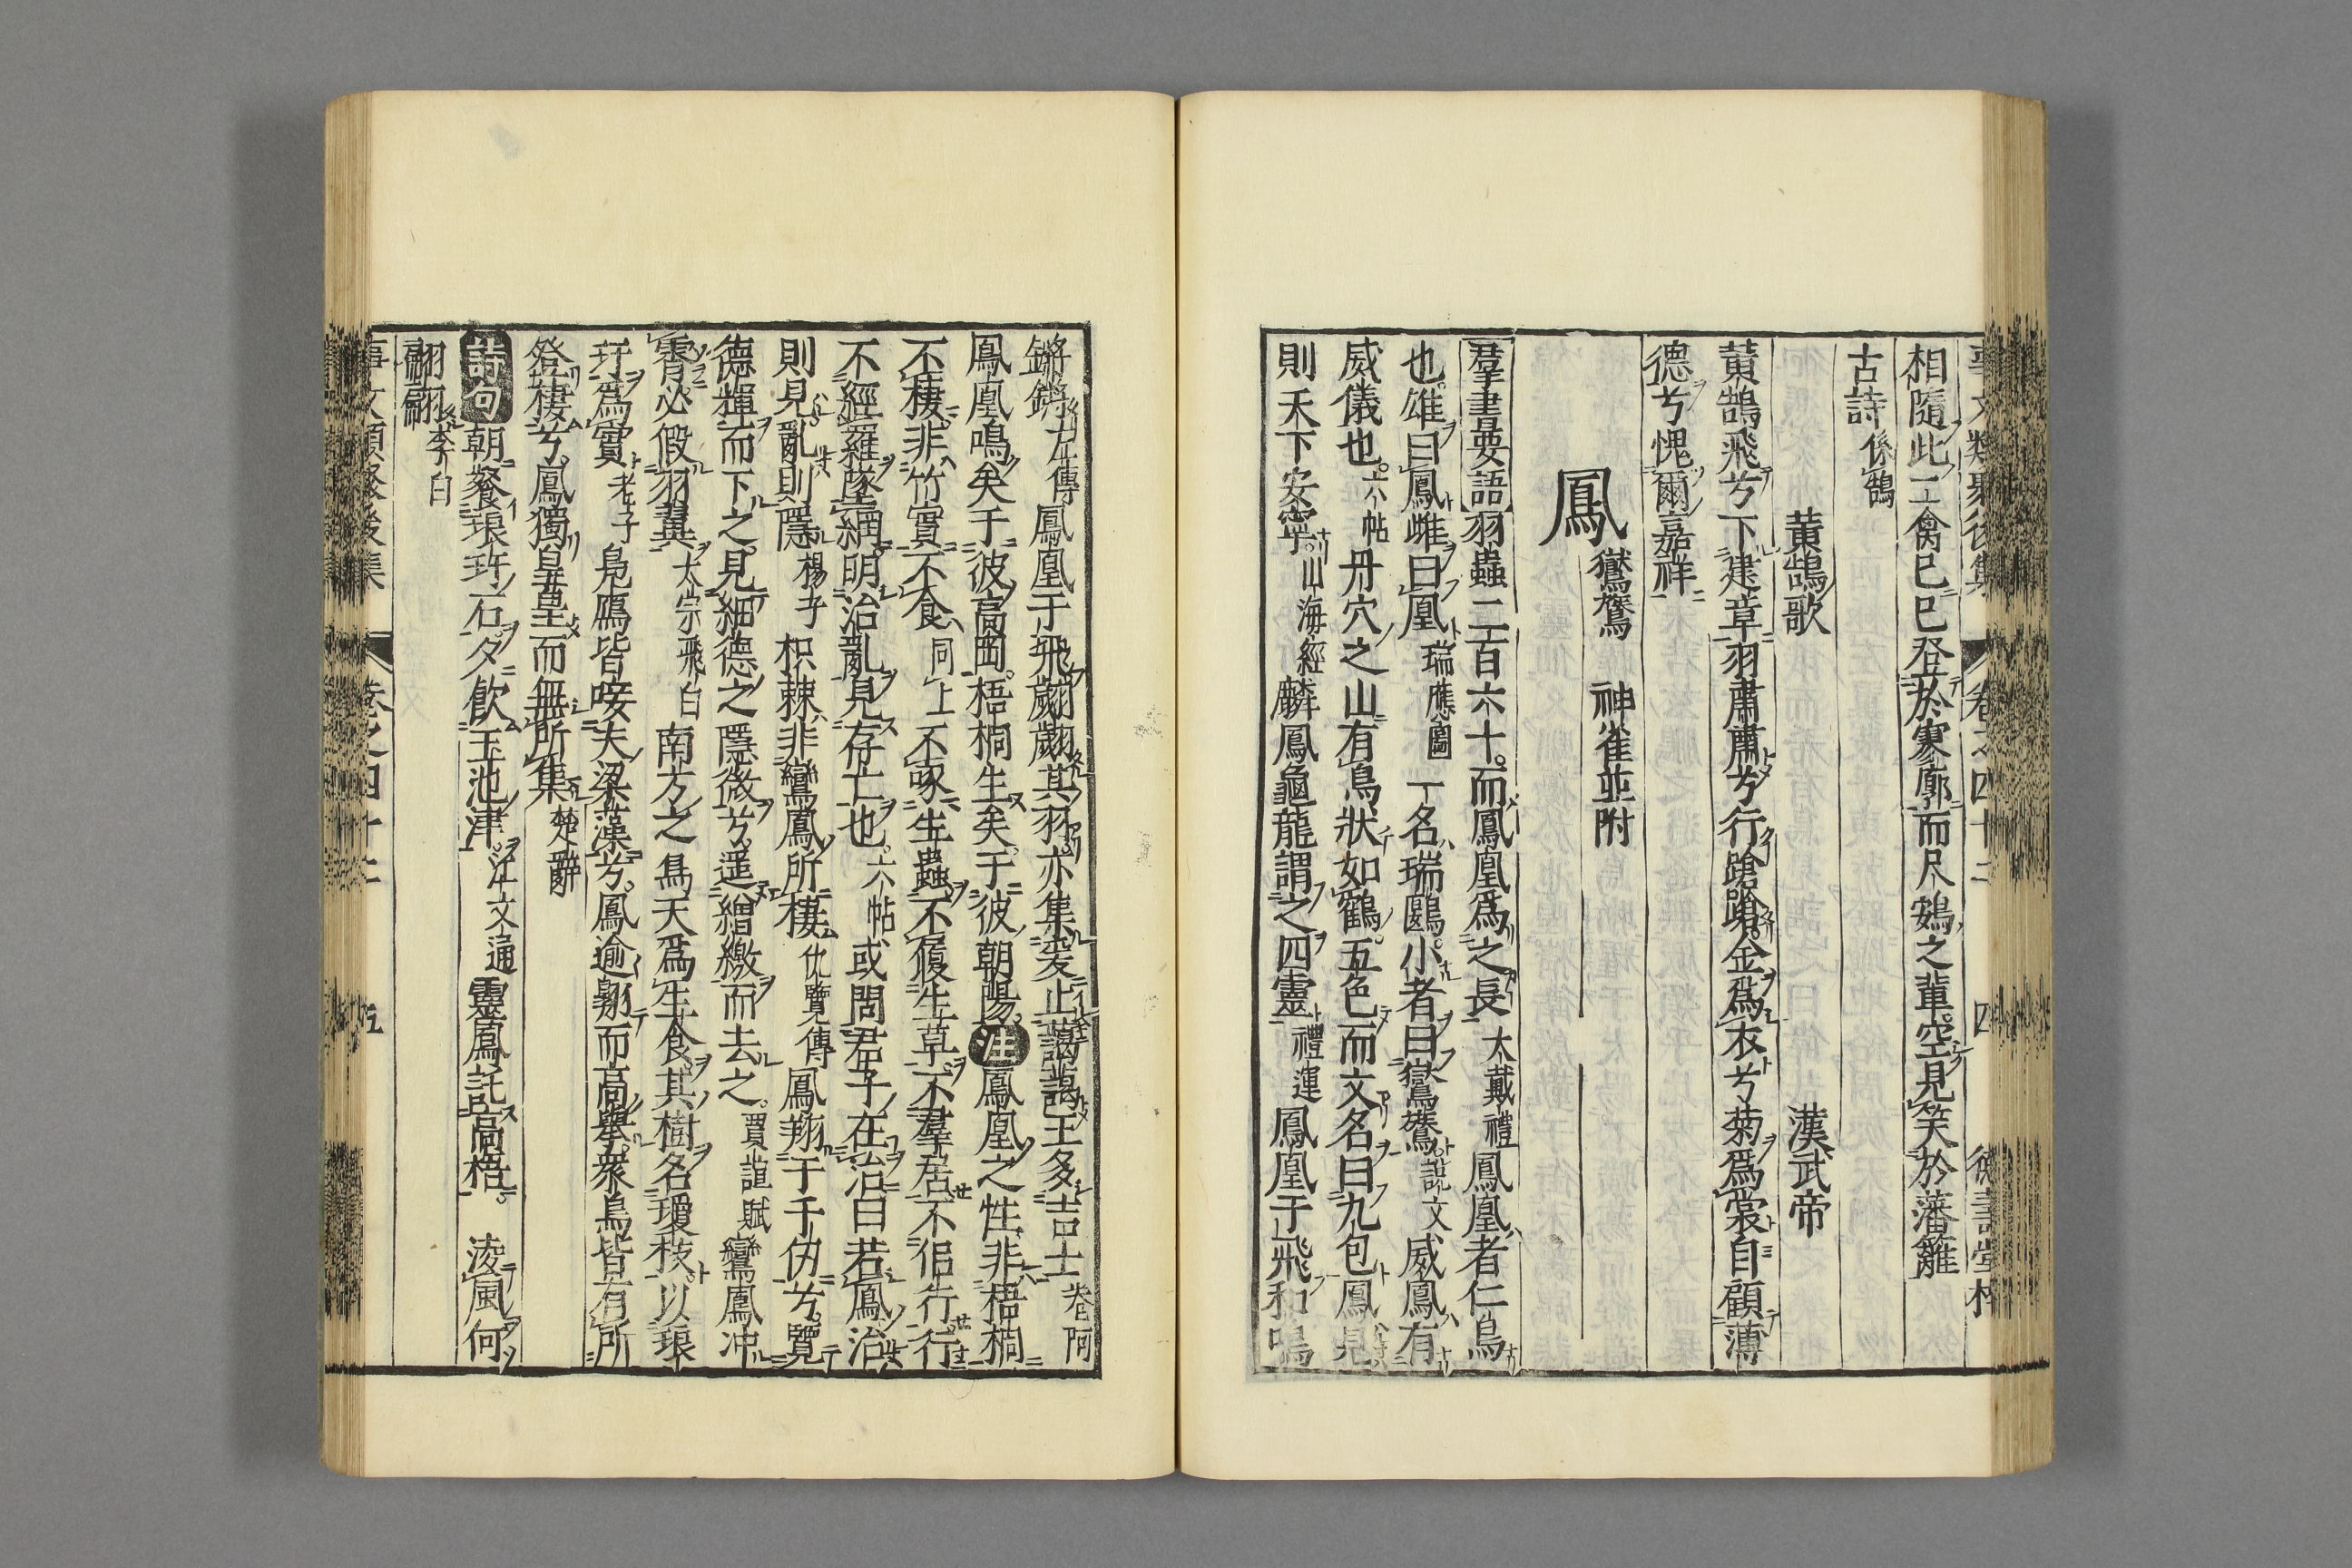 事文類聚後集 卷之四十二 四 德壽堂梓
相隨此二禽已已登於寥廓而尺鷃之輩空見笑於藩籬
古詩係鵠
黃鵠歌 漢武帝
黃鵠飛兮下建章羽肅肅兮行蹌蹌金為衣兮菊為裳自顧薄
德兮愧爾嘉祥
鳳 鸑鷟 神雀並附
羣書要語羽蟲三百六十而鳳凰爲之長大戴禮鳳凰者仁鳥
也雄曰鳳雌曰凰瑞應圖一名瑞鶠小者曰鸑鷟說文威鳳有
威儀也六帖丹穴之山有鳥狀如鶴五色而文名曰九包鳳見
則天下安寧山海經麟鳳龜龍謂之四靈禮運鳳凰于飛和鳴
鏘鏘左傳鳳凰于飛翽翽其羽亦集爰止藹藹王多吉士卷阿
鳳凰鳴矣于彼高岡梧桐生矣于彼朝陽注鳳凰之性非梧桐
不棲非竹實不食同上不啄生蟲不履生草不羣居不侶行行
不經羅墜網明治亂見存亡也六帖或問君子在治曰若鳳治
則見亂則隱楊子枳棘非鸞鳳所棲仇覽傳鳳翔于千仞兮覽
德輝而下之見細德之隱微兮遥繒繳而去之賈誼賦鸞鳳冲
霄必假羽翼太宗飛白南方之鳥天爲生食其樹名瓊枝以琅
玕爲實老子鳧鴈皆唼夫梁藻兮鳳逾翺而高舉眾鳥皆有所
登棲兮鳳獨皇皇而無所集楚辭
詩句朝餐琅玕石夕飲玉池津江文通靈鳳託高梧 凌風何
翩翩李白
事文類聚後集 卷之四十二 五